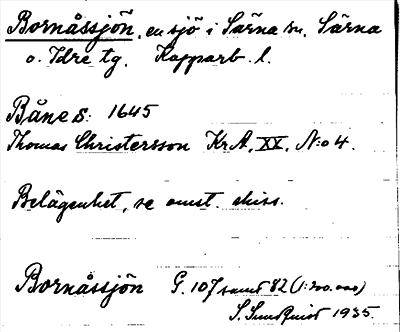 Bornåssjön, en sjö i Särna sn. Särna
o. Idre tg. Kopparb. l.
Båne s: 1645
Thomas Christersson Kr.A, XX, N:o 4.
Belägenhet, se omst. skiss.
Bornåssjön G. 107 samt 82 (1:200.000)
S. Sundqvist 1935.